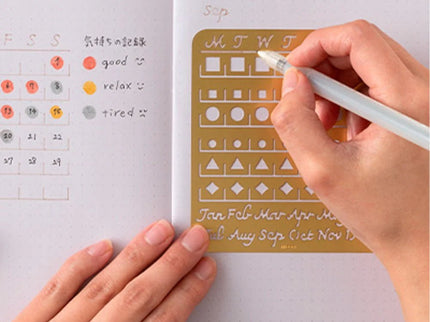 F S S
1
6 7 8
13 14 15
20 21 22
27 28 29
気持ちの記録
good
relax
tired
Sep
M T W T
Jan Feb Mar Apr
Aug Sep Oct Nov